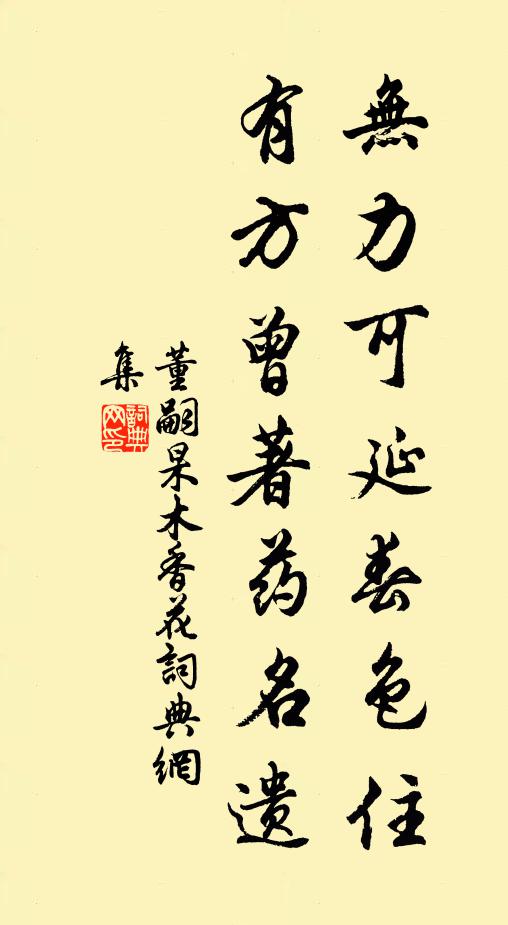 無力可延春色住
有方曾著药名遗
董嗣杲木香花詞典網
集
詞典網印